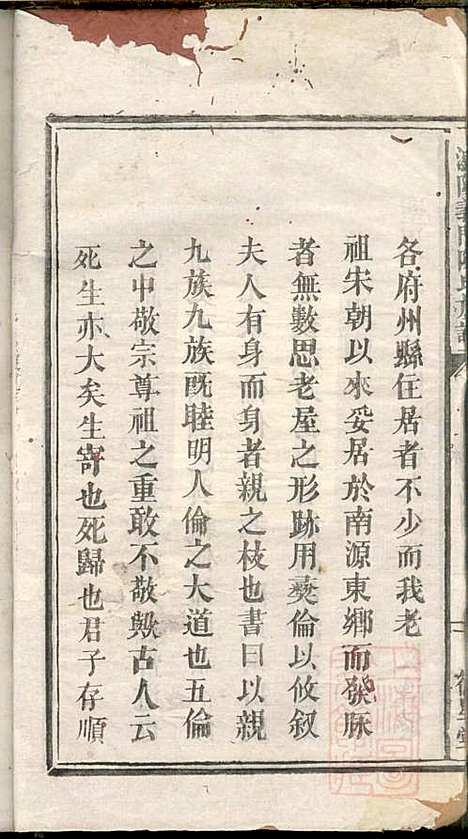 各府州縣住居者不少而我老
祖宋朝以來妥居於南源東鄉而發脉
者無數思老屋之形跡用彝倫以攸叙
夫人有身而身者親之枝也書曰以親
九族九族既睦明人倫之大道也五倫
之中敬宗尊祖之重敢不敬歟古人云
死生亦大矣生寄也死歸也君子存順